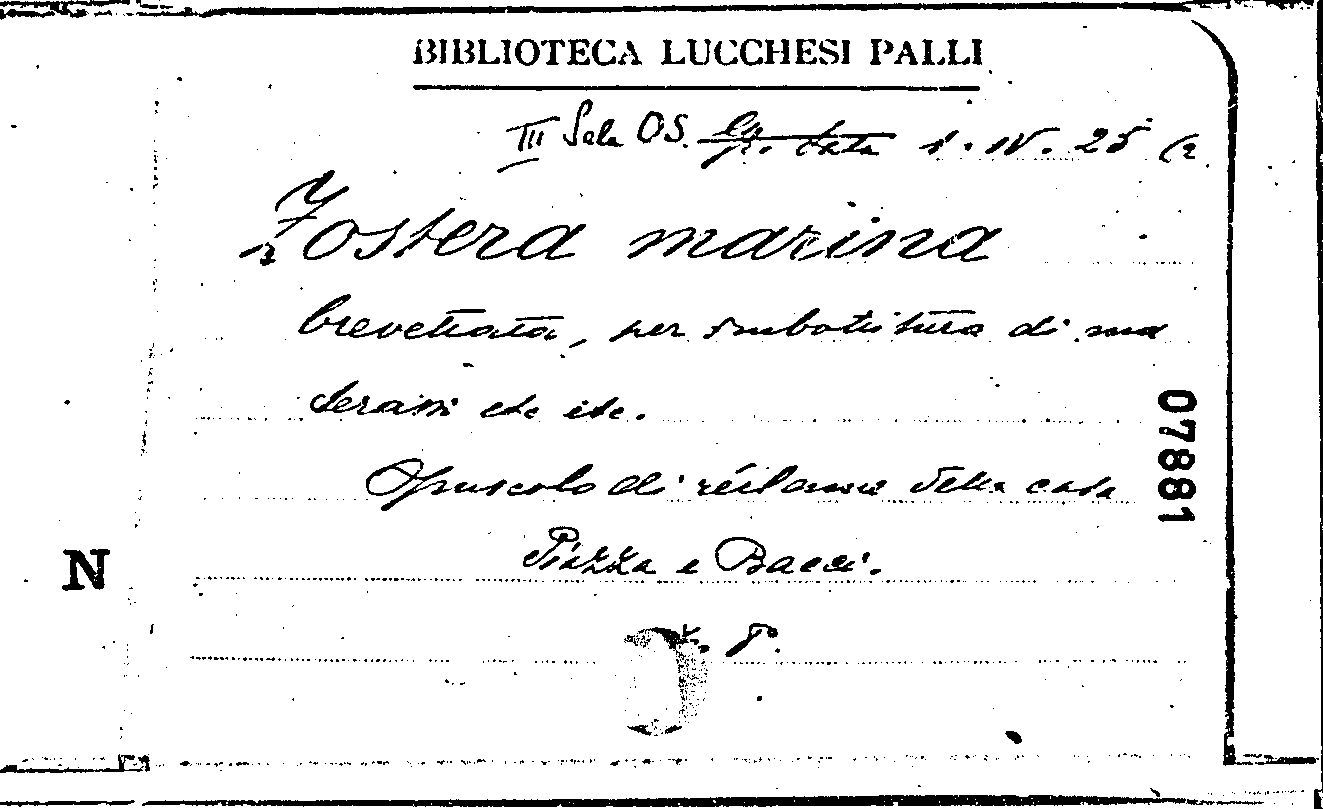 BIBLIOTECA LUCCHESI PALLI
III Sala OS. 1. IV. 25 (2
Zostera marina
brevettata, per imbottitura di ma
terassi etc etc.
Opuscolo di réclame della casa
Piazza e Bacci.
8°.
07881
N